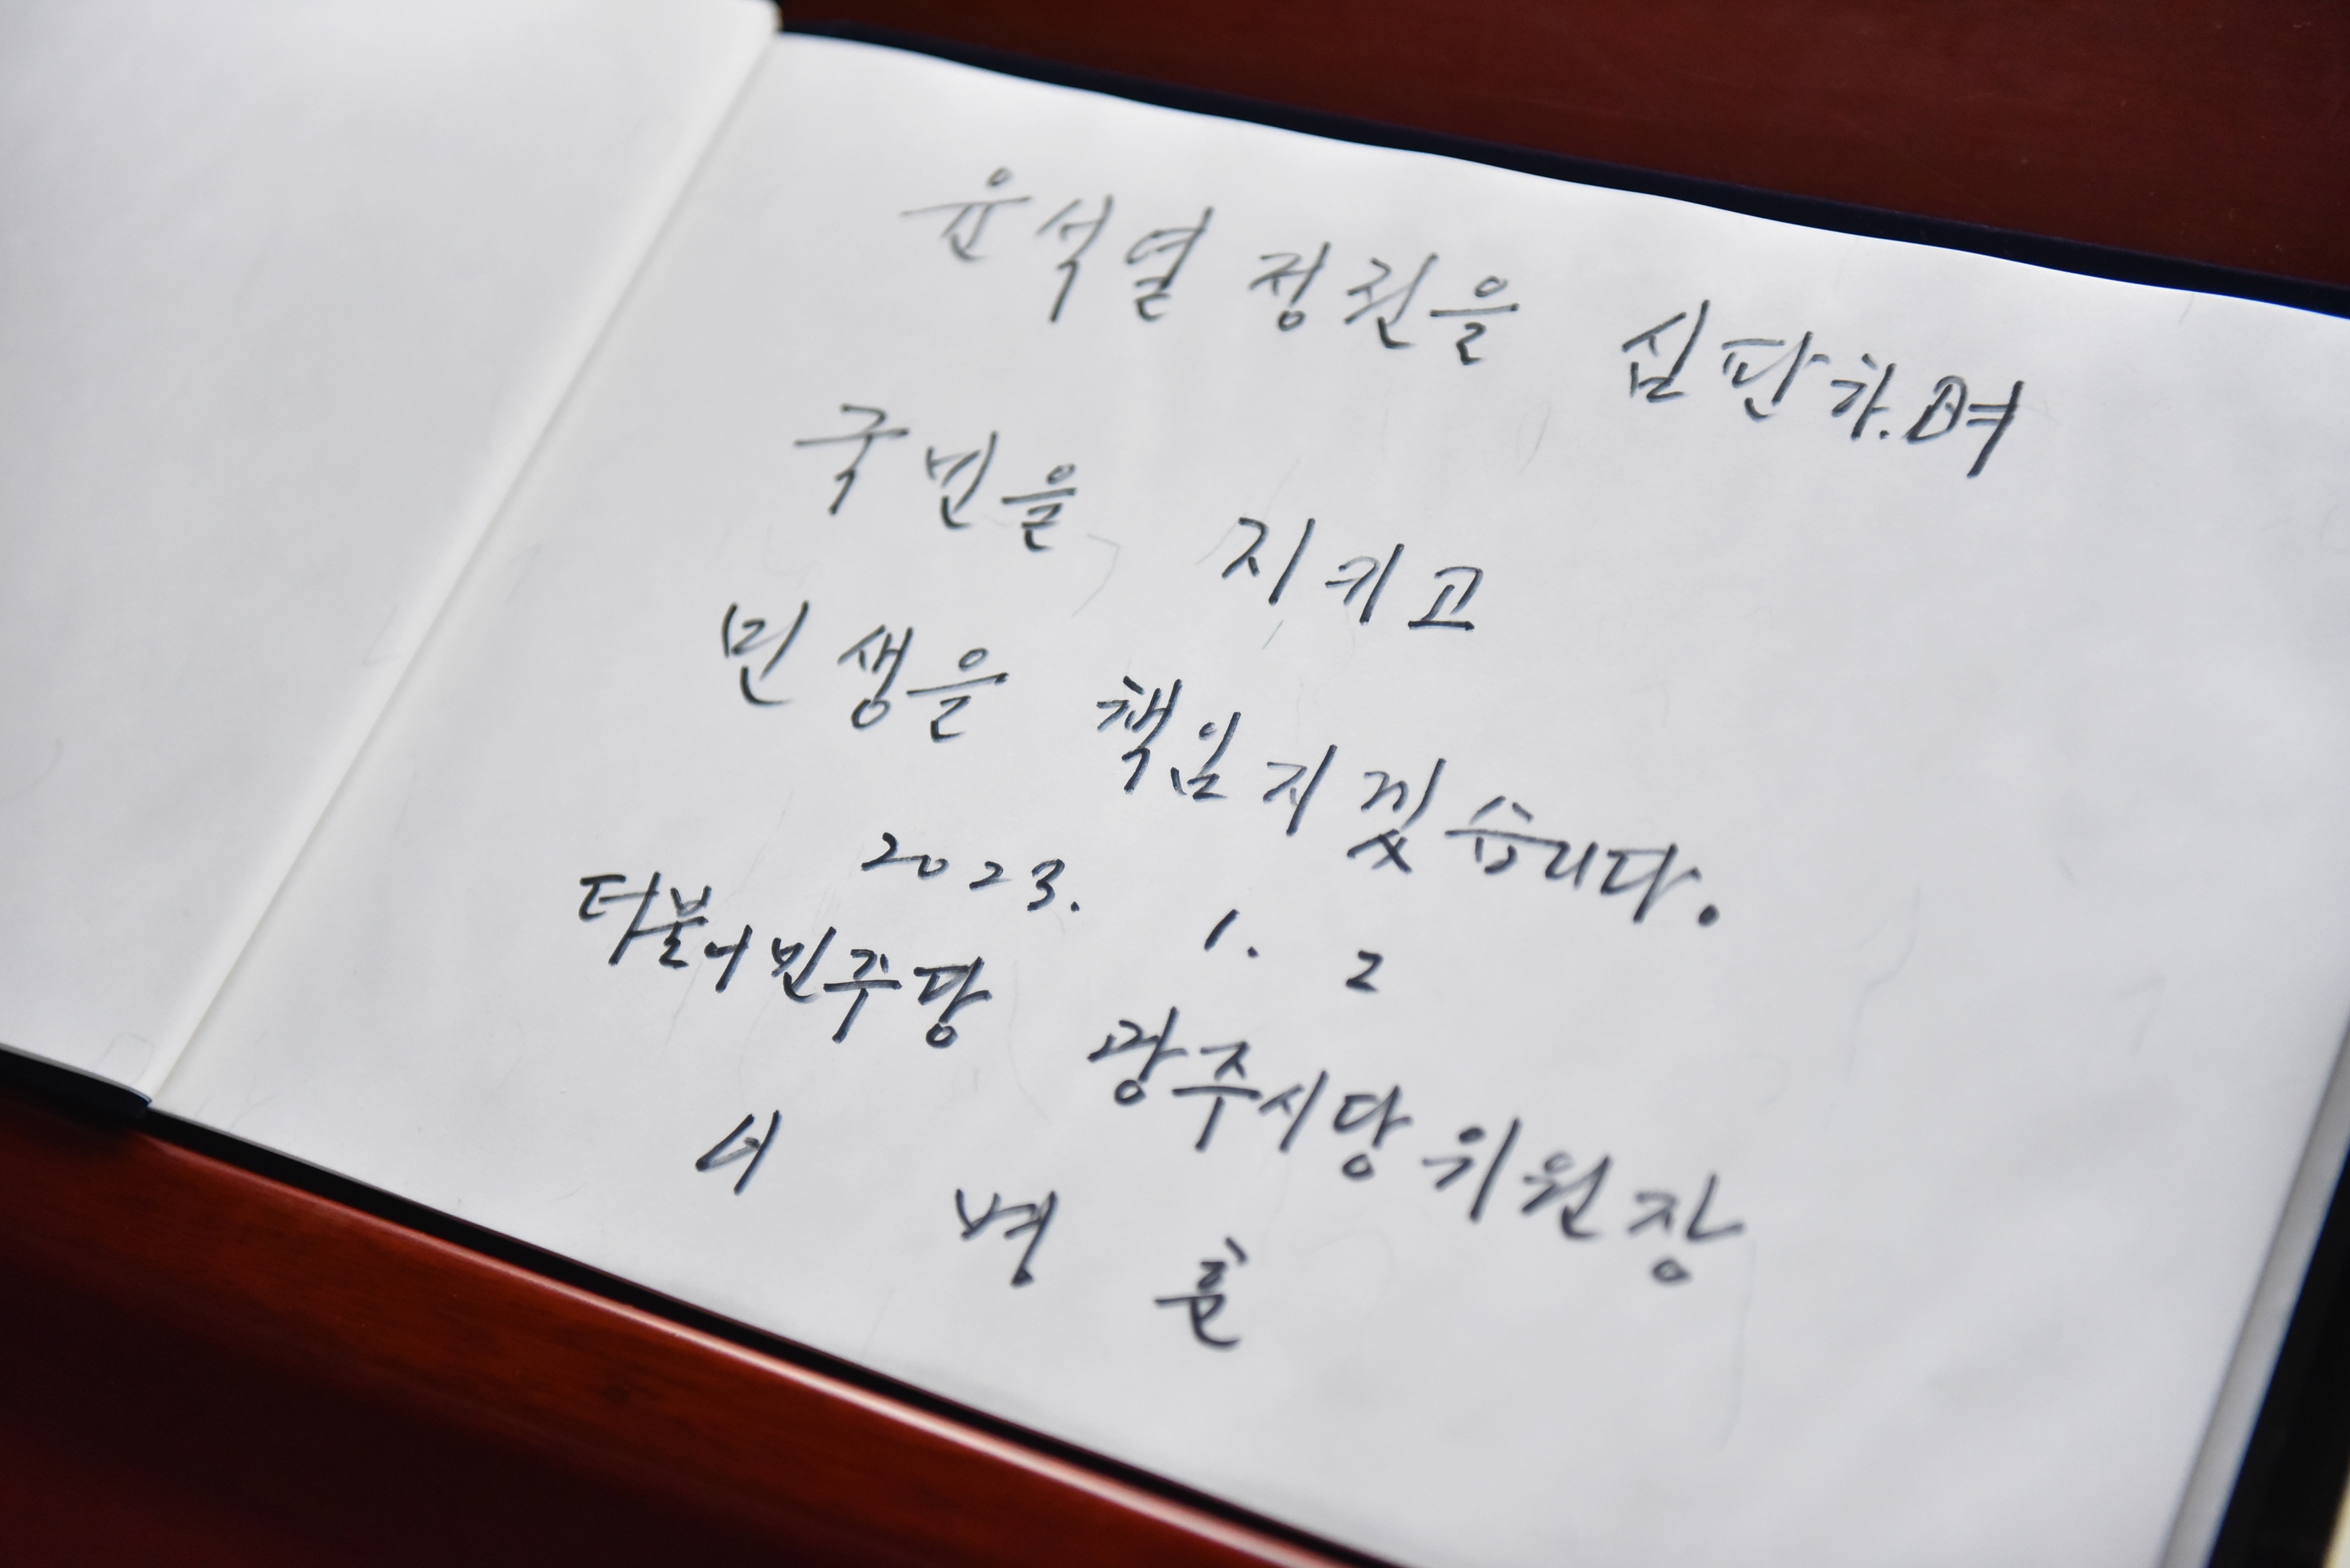 윤석열 정권을 심판하며
국민을 지키고
민생을 책임지겠습니다.
2023. 1. 2
더불어민주당 광주시당위원장
이병훈